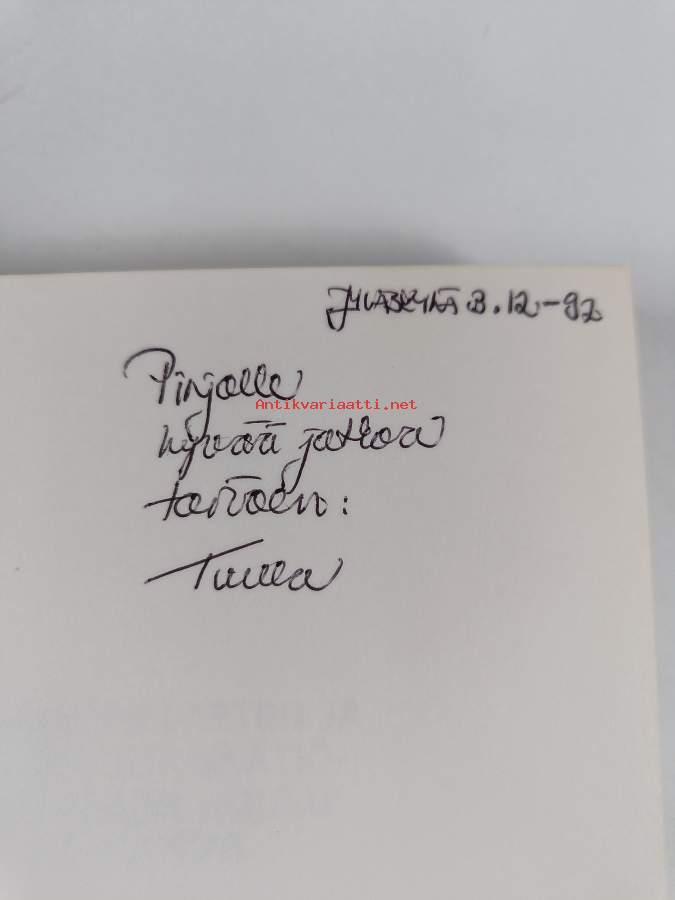 Jyväskylä 3.12-92
Pinjalle
Antikvariaatti.net
hyvää jatkoa
toivoen:
Tuula